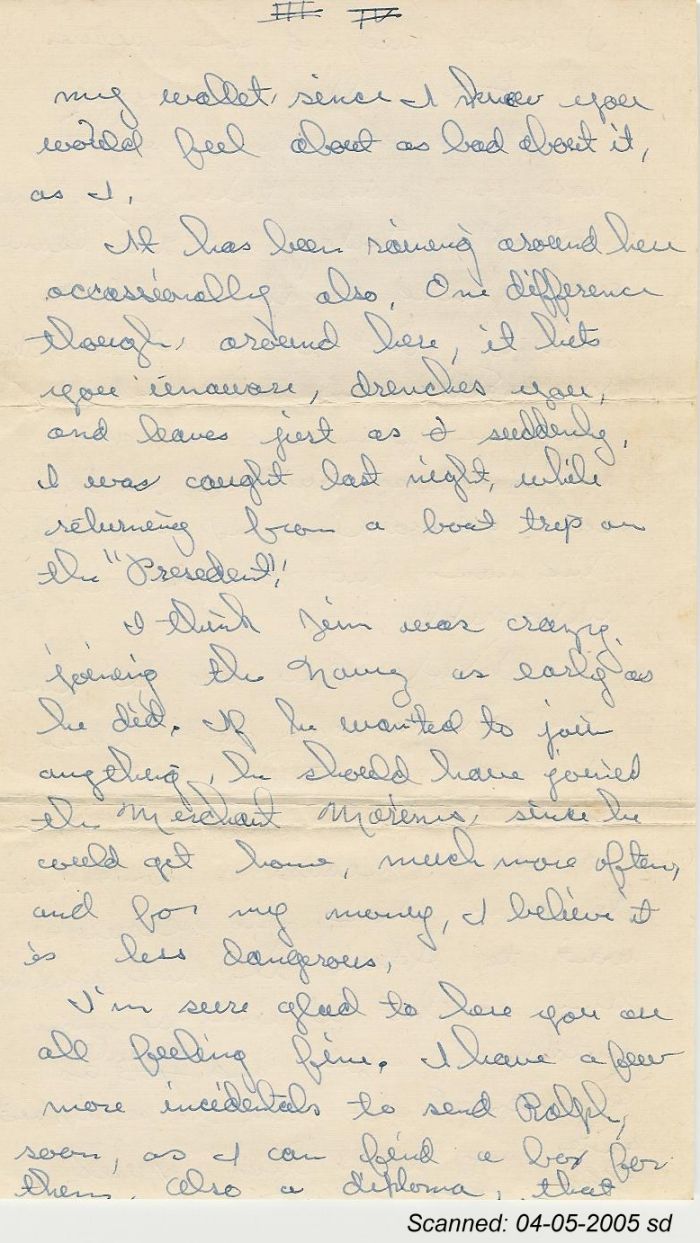 III IV
my wallet, since I know you
would feel about as bad about it,
as I.
It has been raineng around here
occassionally also. One difference
though, around here, it hits
you unaware, drenches you,
and leaves just as I suddenly.
I was caught last night, while
returning from a boat trip on
the "President".
I think Jim was crazy,
joining the Navy as early as
he did. If he wanted to join
anything, he should have joined
the Merchant Marines, since he
could get home, much more often,
and for my money, I believe it
is less dangerous.
I'm sure glad to hear you are
all feeling fine. I have a few
more incidentals to send Ralph,
soon, as I can find a box for
them, also a diploma, that
Scanned: 04-05-2005 sd